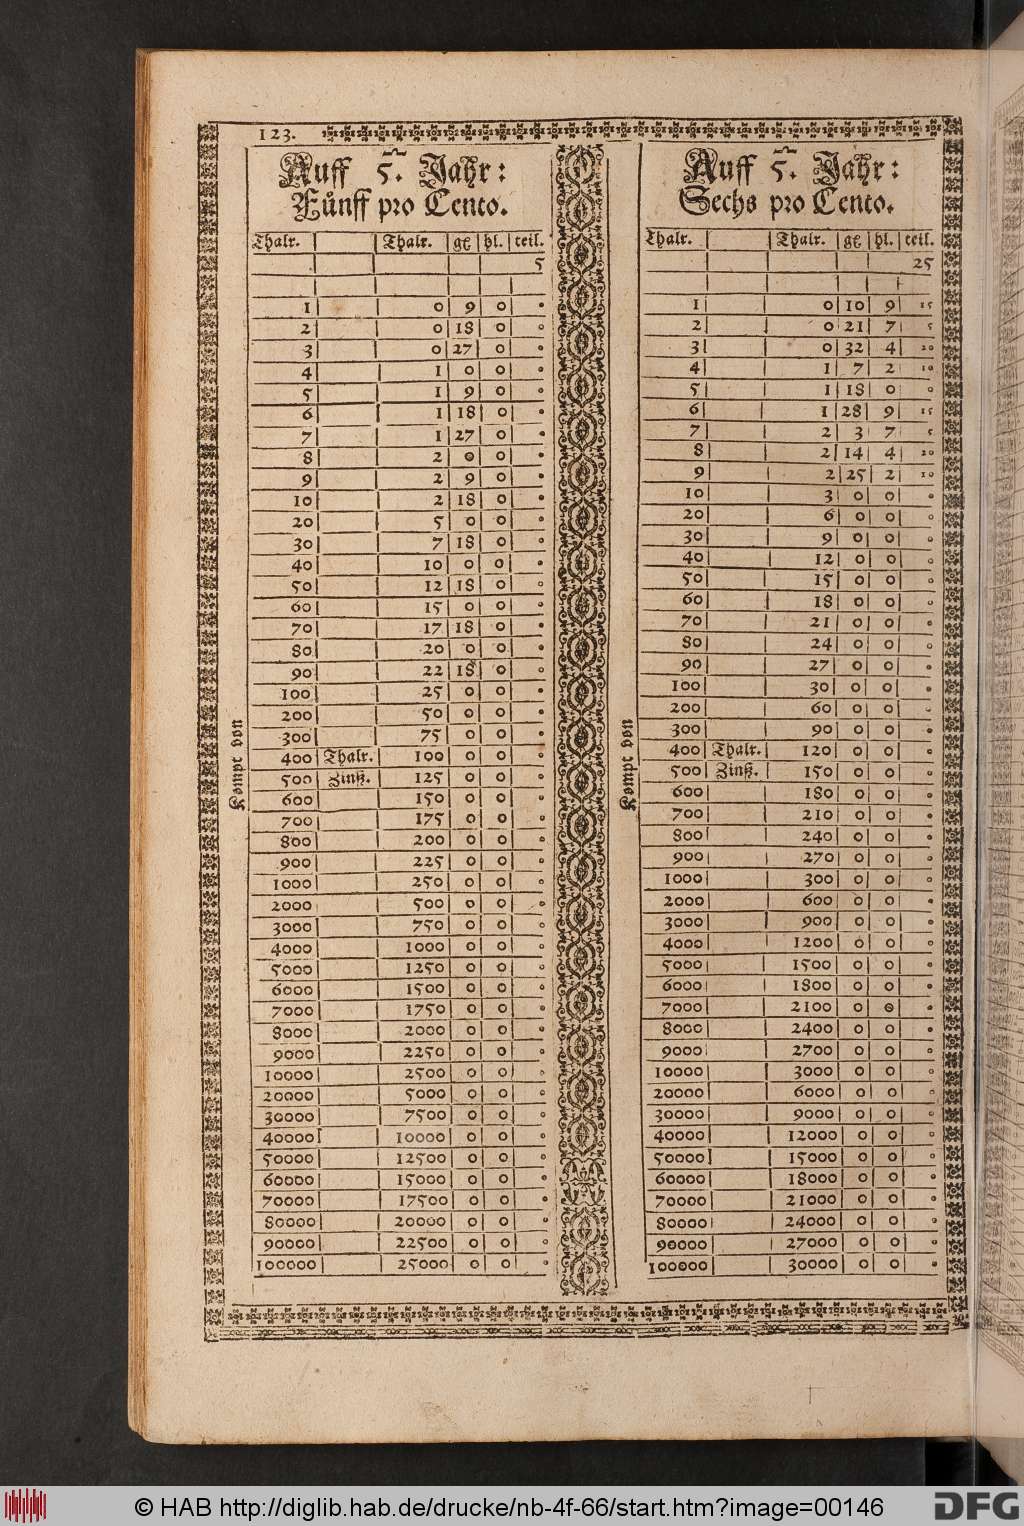 123.
Auff 5. Jahr:
Fůnff pro Cento.
Thalr. Thalr. gℓ hl. teil.
5
1 0 9 0 0
2 0 18 0 0
3 0 27 0 0
4 1 0 0 0
5 1 9 0 0
6 1 18 0 0
7 1 27 0 0
8 2 0 0 0
9 2 9 0 0
10 2 18 0 0
20 5 0 0 0
30 7 18 0 0
40 10 0 0 0
50 12 18 0 0
60 15 0 0 0
70 17 18 0 0
80 20 0 0 0
90 22 18 0 0
100 25 0 0 0
200 50 0 0 0
300 75 0 0 0
400 Thalr. 100 0 0 0
500 Zinß. 125 0 0 0
600 150 0 0 0
700 175 0 0 0
800 200 0 0 0
900 225 0 0 0
1000 250 0 0 0
2000 500 0 0 0
3000 750 0 0 0
4000 1000 0 0 0
5000 1250 0 0 0
6000 1500 0 0 0
7000 1750 0 0 0
8000 2000 0 0 0
9000 2250 0 0 0
10000 2500 0 0 0
20000 5000 0 0 0
30000 7500 0 0 0
40000 10000 0 0 0
50000 12500 0 0 0
60000 15000 0 0 0
70000 17500 0 0 0
80000 20000 0 0 0
90000 22500 0 0 0
100000 25000 0 0 0
Kompt von
Auff 5. Jahr:
Sechs pro Cento.
Thalr. Thalr. gℓ hl. teil.
25
1 0 10 9 15
2 0 21 7 5
3 0 32 4 20
4 1 7 2 10
5 1 18 0 0
6 1 28 9 15
7 2 3 7 5
8 2 14 4 20
9 2 25 2 10
10 3 0 0 0
20 6 0 0 0
30 9 0 0 0
40 12 0 0 0
50 15 0 0 0
60 18 0 0 0
70 21 0 0 0
80 24 0 0 0
90 27 0 0 0
100 30 0 0 0
200 60 0 0 0
300 90 0 0 0
400 Thalr. 120 0 0 0
500 Zinß. 150 0 0 0
600 180 0 0 0
700 210 0 0 0
800 240 0 0 0
900 270 0 0 0
1000 300 0 0 0
2000 600 0 0 0
3000 900 0 0 0
4000 1200 0 0 0
5000 1500 0 0 0
6000 1800 0 0 0
7000 2100 0 0 0
8000 2400 0 0 0
9000 2700 0 0 0
10000 3000 0 0 0
20000 6000 0 0 0
30000 9000 0 0 0
40000 12000 0 0 0
50000 15000 0 0 0
60000 18000 0 0 0
70000 21000 0 0 0
80000 24000 0 0 0
90000 27000 0 0 0
100000 30000 0 0 0
Kompt von
© HAB http://diglib.hab.de/drucke/nb-4f-66/start.htm?image=00146
DFG